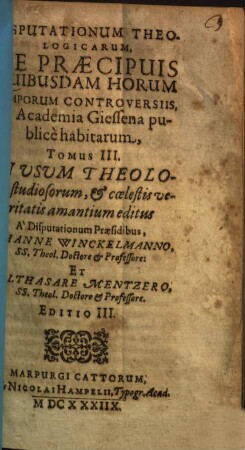 SPUTATIONUM THEO-
LOGICARUM,
E PRÆCIPUIS
UIBUSDAM HORUM
MPORUM CONTROVERSIIS,
Academia Giessena pu-
blicè habitarum,
TOMUS III.
USUM THEOLO-
studiosorum, & cœlestis ve-
ritatis amantium editus
A' Disputationum Præsidibus,
ANNE WINCKELMANNO,
SS. Theol. Doctore & Professore:
ET
LTHASARE MENTZERO,
SS. Theol. Doctore & Professore.
EDITIO III.
MARPURGI CATTORUM,
NICOLAI HAMPELII, Typogr. Acad.
M DC XXXIIX.